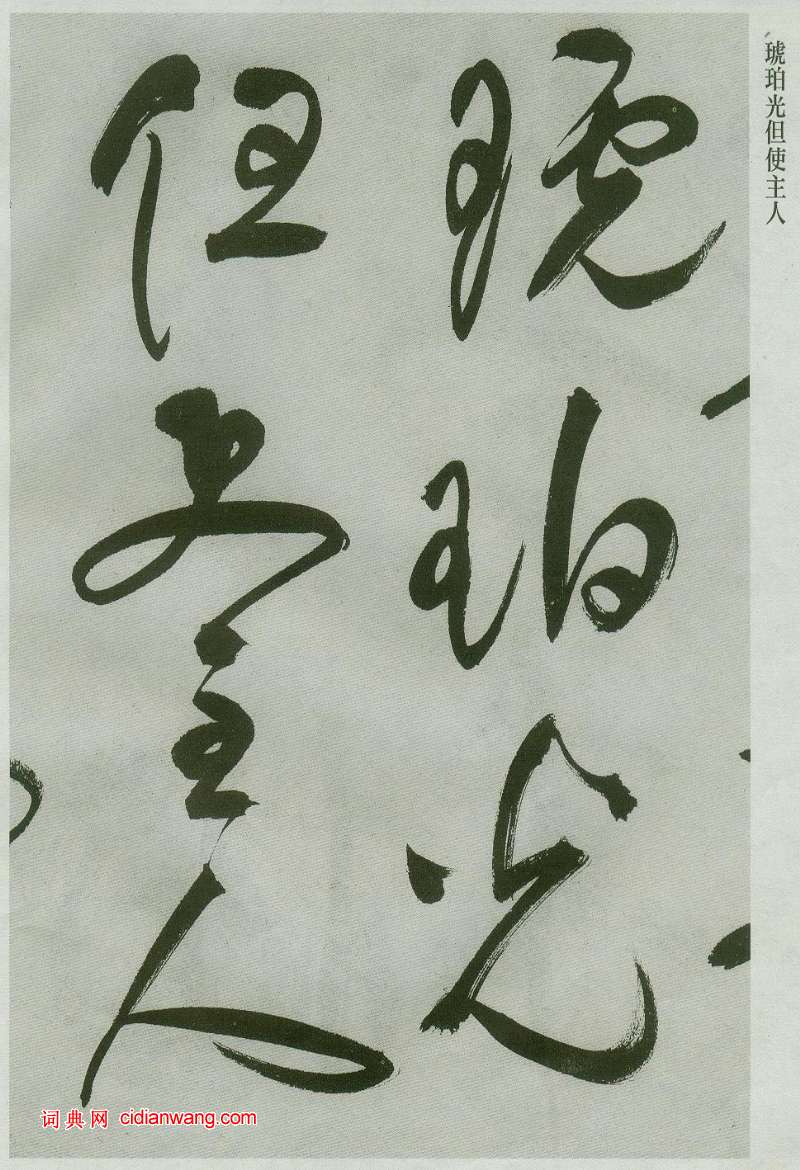 琥珀光但使主人
琥珀光
但使主人
词典网 cidianwang.com